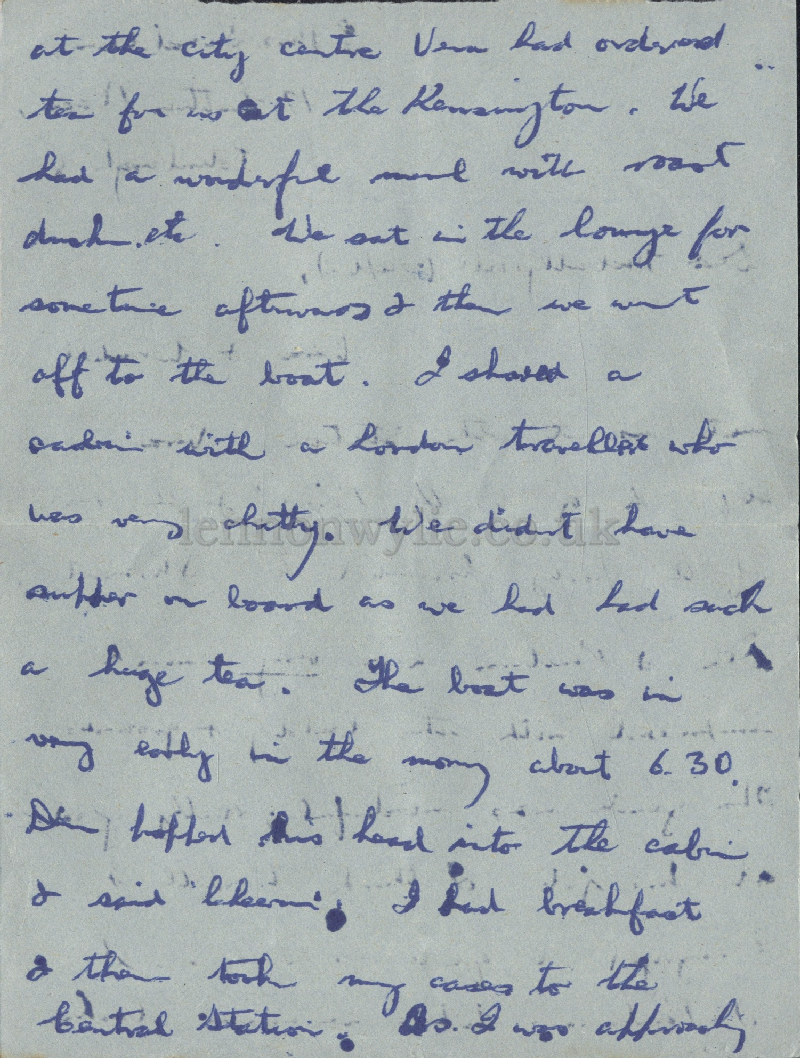 at the city centre Vera had ordered
tea for us at the Kensington. We
had a wonderful meal with roast
duck etc. We sat in the lounge for
sometime afterwards & then we went
off to the boat. I shared a
cabin with a London traveller who
was very chatty. We didn't have
lennonwylie.co.uk
supper on board as we had had such
a huge tea. The boat was in
very early in the morning about 6.30.
popped his head into the cabin
& said cheerio. I had breakfast
& then took my cases to the
Central Station. As I was approaching